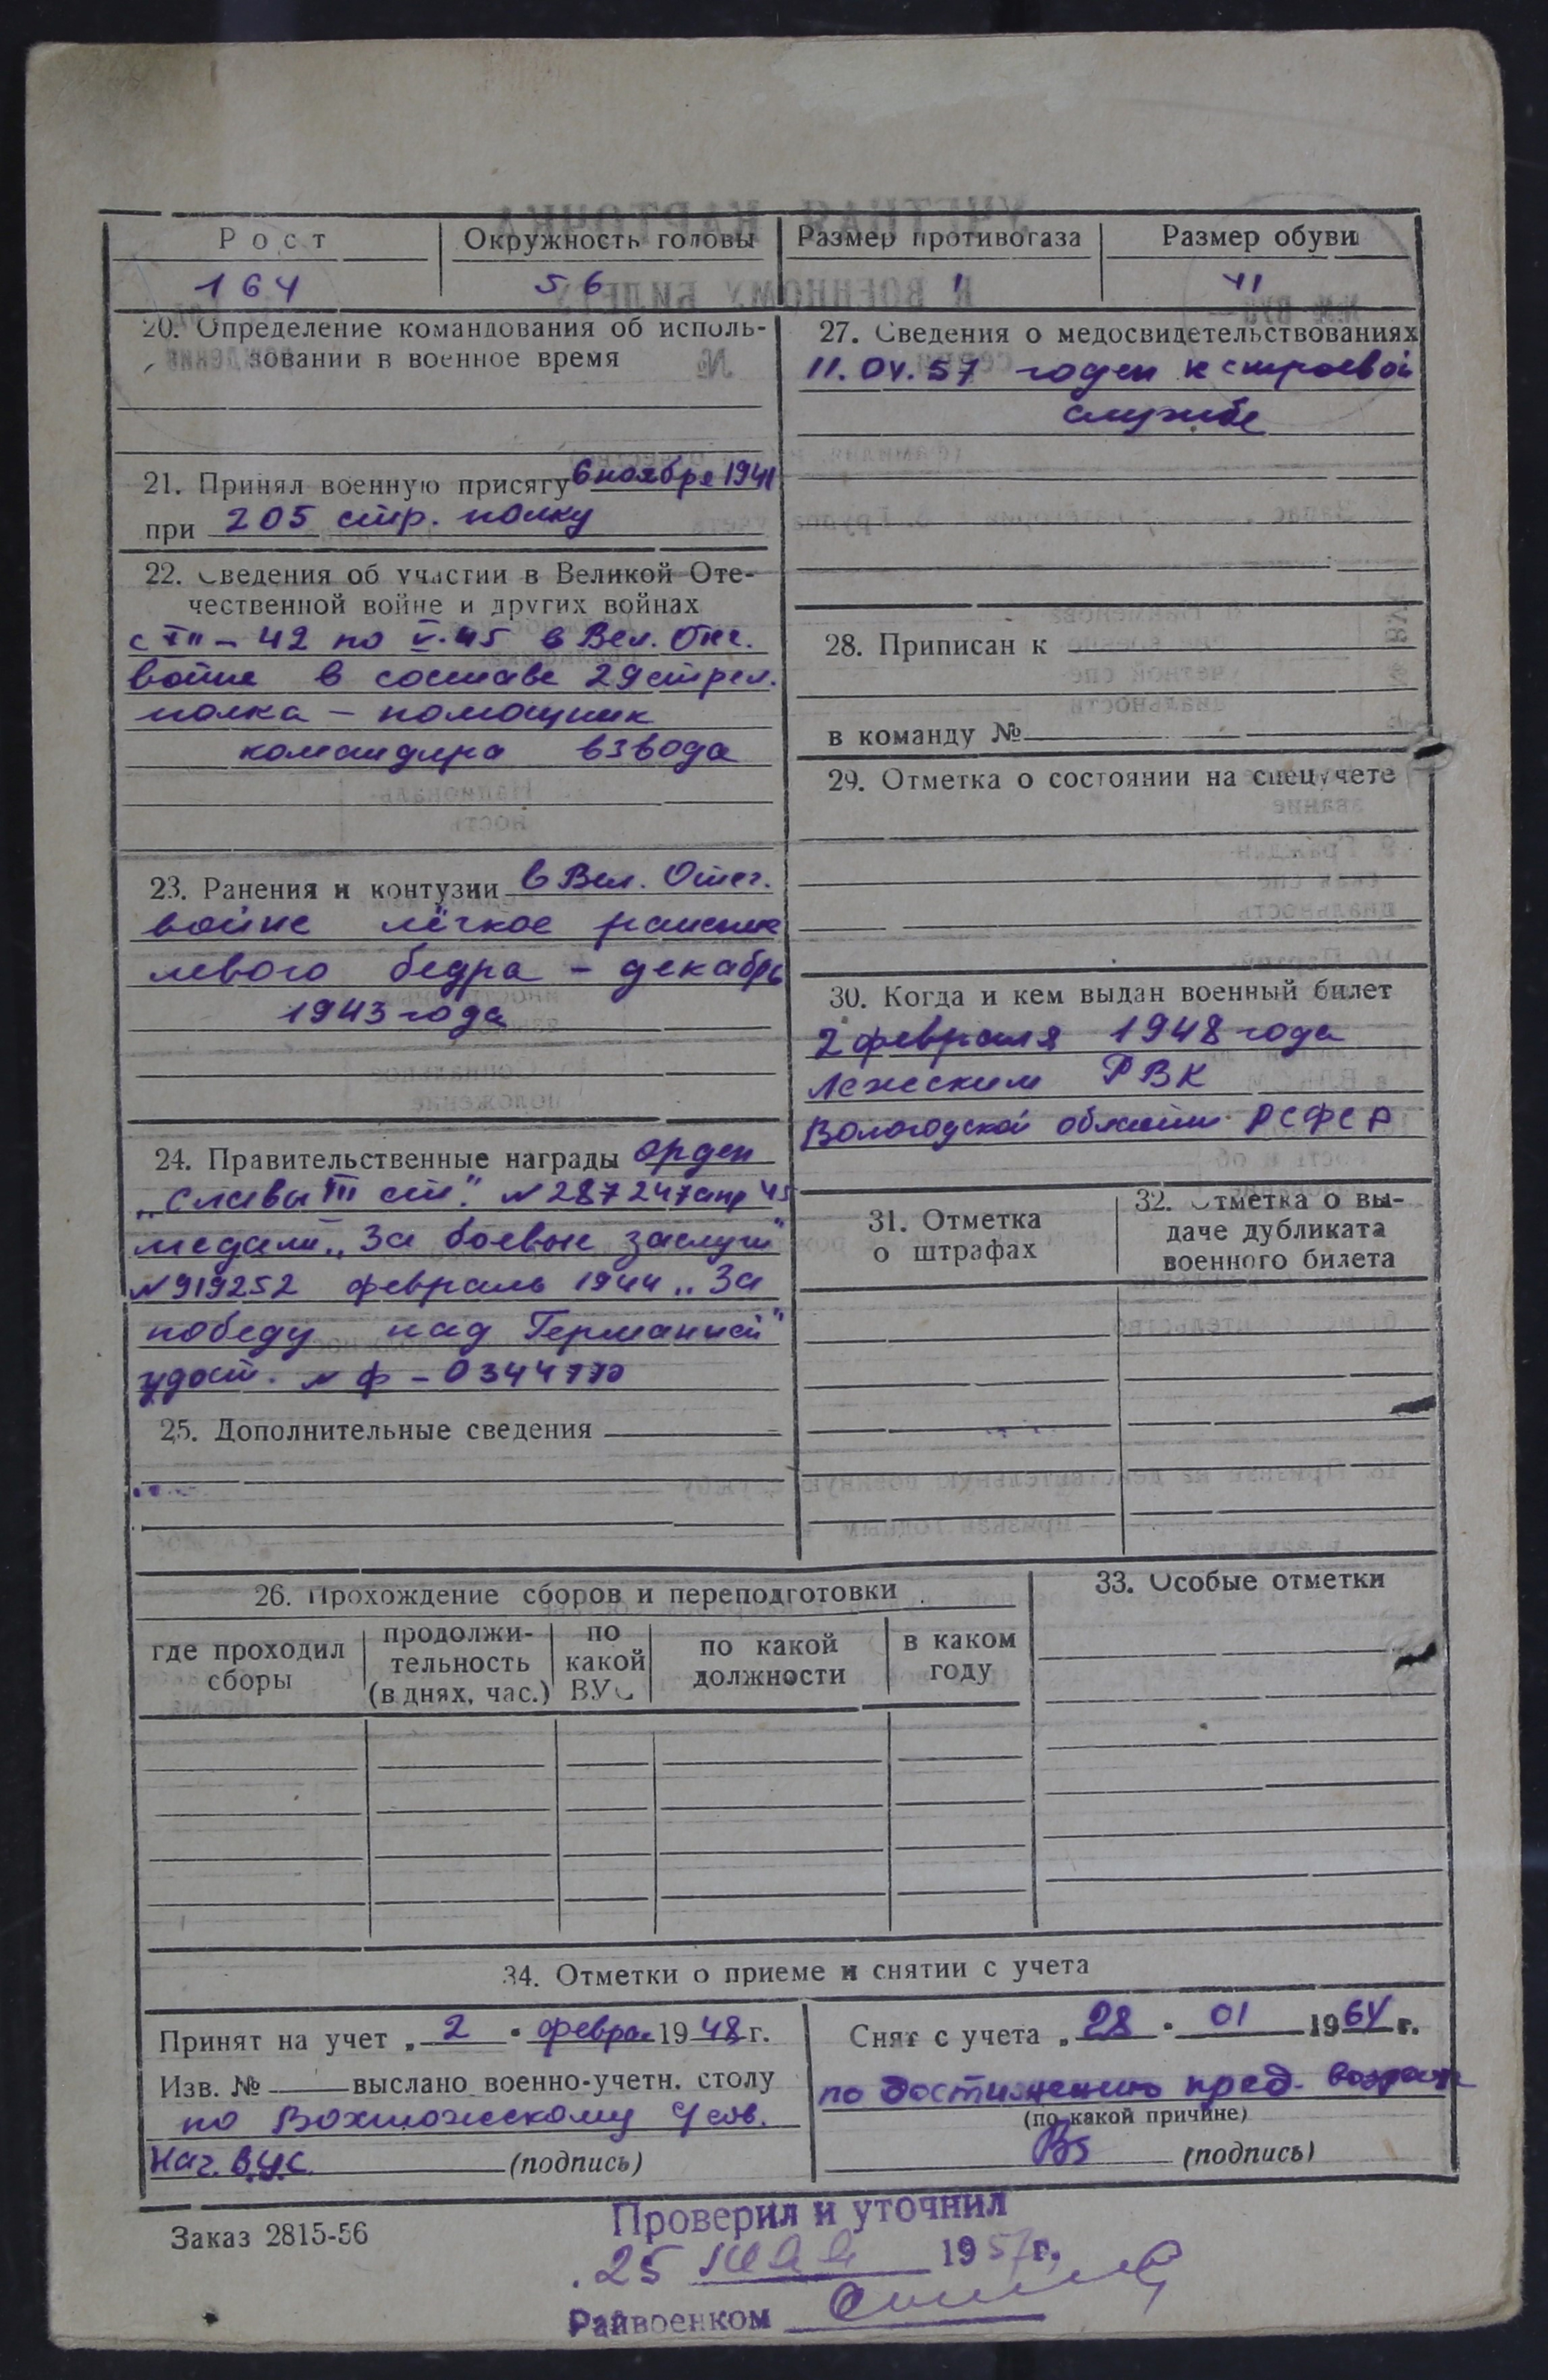 Рост
Окружность головы
Размер противогаза
Размер обуви
164
56
1
41
20. Определение командования об исполь-
зовании в военное время
21. Принял военную присягу 6 ноября 1941
при 205 стр. полку
22. Сведения об участии в Великой Оте-
чественной войне и других войнах
42 по V-45 в Вел. Отеч.
войне в составе 29 стрел.
полка – помощник
командира взвода
23. Ранения и контузии в Вел. Отеч.
войне лёгкое ранение
левого бедра – декабрь
1943 года
24. Правительственные награды орден
„Славы III ст." № 287247 апр 45
медали „За боевые заслуги"
№ 919252 февраль 1944 „За
победу над Германией"
удост. № Ф – 0344770
25. Дополнительные сведения
27. Сведения о медосвидетельствованиях
11.04.57 годен к строевой
службе
28. Приписан к
в команду №
29. Отметка о состоянии на спецучете
30. Когда и кем выдан военный билет
2 февраля 1948 года
Лежским РВК
Вологодской области РСФСР
31. Отметка
о штрафах
32. Отметка о вы-
даче дубликата
военного билета
26. Прохождение сборов и переподготовки
где проходил
сборы
продолжи-
тельность
(в днях, час.)
по
какой
ВУС
по какой
должности
в каком
году
33. Особые отметки
34. Отметки о приеме и снятии с учета
Принят на учет „ 2 " февра 1948 г.
Изв. № выслано военно-учетн. столу
по Вохтожскому с/сов.
Нач. ВУС (подпись)
Снят с учета „ 28 " 01 1964 г.
по достижению пред. возраста
(по какой причине)
(подпись)
Заказ 2815-56
Проверил и уточнил
25 мая 1957 г.
Райвоенком